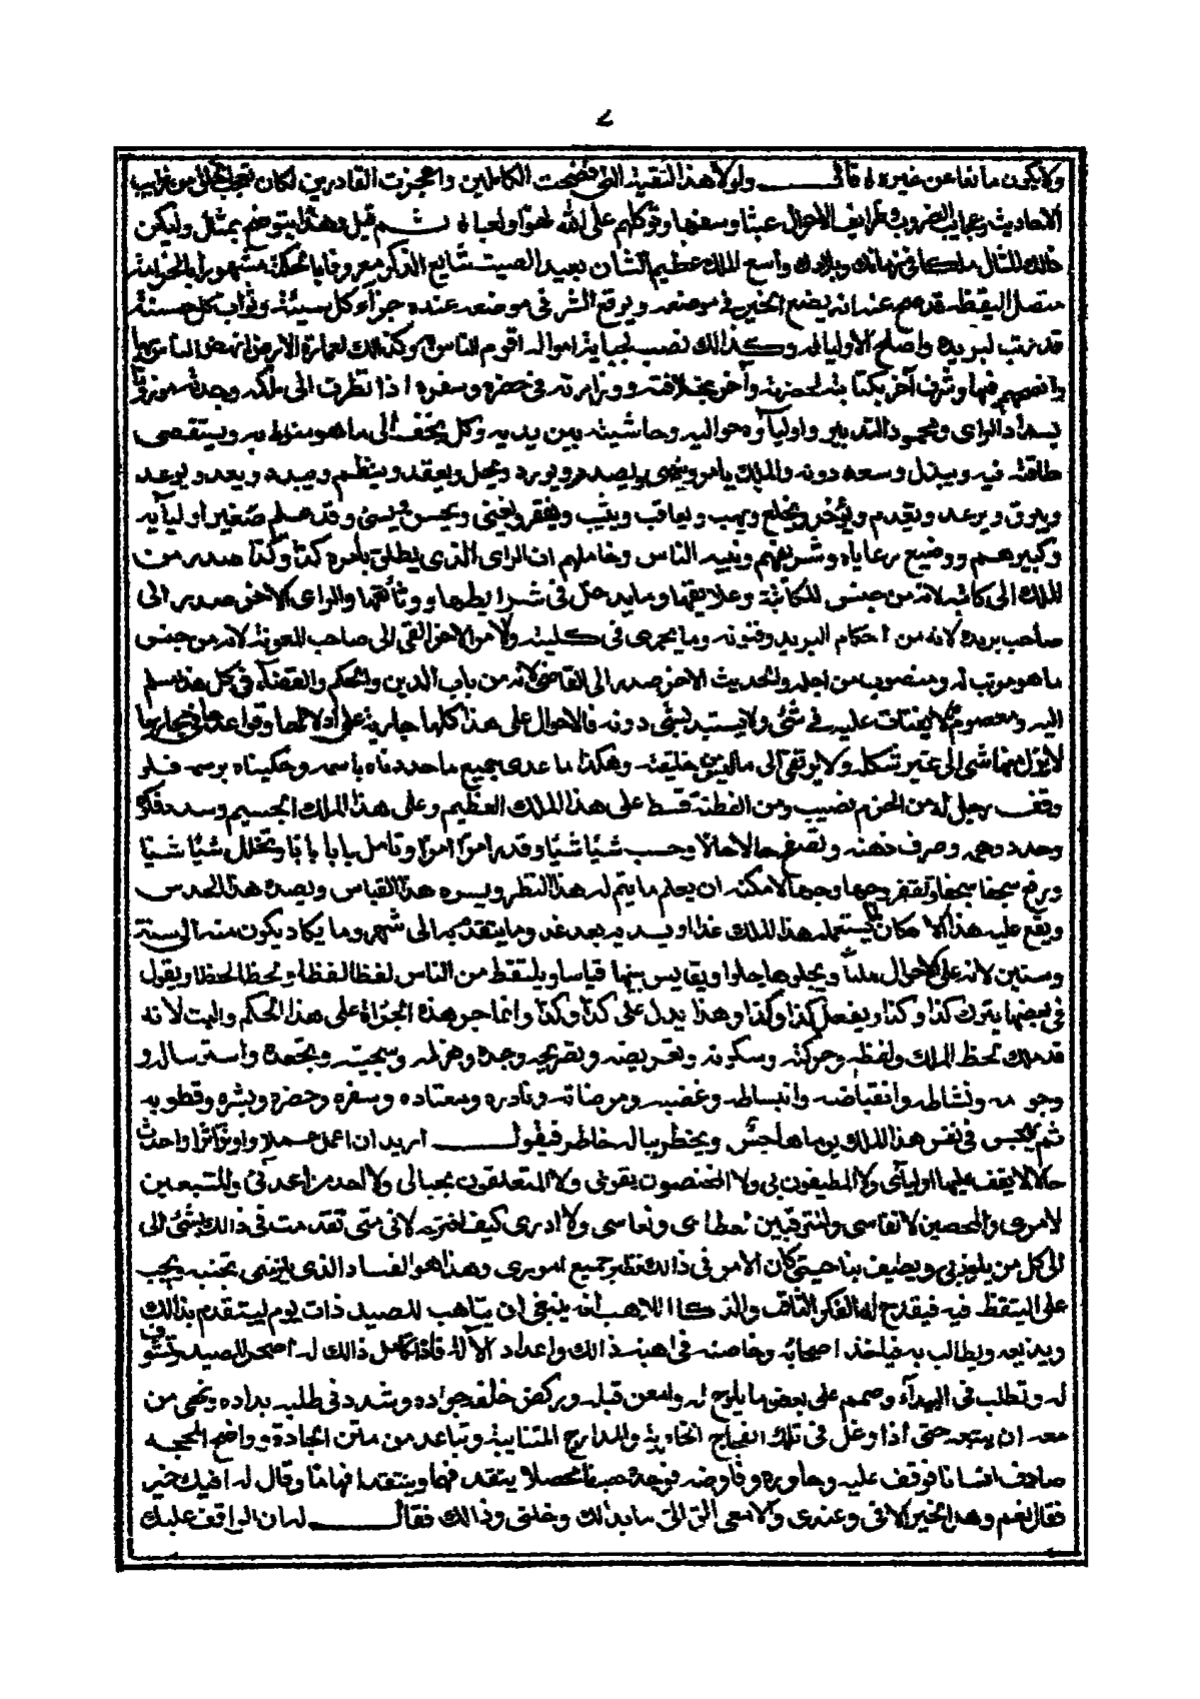 ٧
ولا يكون مانعا من غيره له قال ولولا هذه البقية التي فضحت الكاملين واعجزت القادرين لكان تعجب الخلق من غرايب
الاحاديث وعجايب الضروب وظرايف الاحوال عبثا وسفها وتوكلهم على الله لهوا ولعبا ثم قيل وهذا يتوضح بمثل وليكن
ذلك المثال ملكا في زمانك وبلادك واسع الملك عظيم الشان بعيد الصيت شايع الذكر معروفا بالحكمة مشهورا بالحزامة
متصل اليقظة قد صح عنه انه يضع الخير في موضعه ويوقع الشر في موقعه عنده جزآء كل سيئة وثواب كل حسنة
قد رتب لبريده واصلح الاوليا له وكذالك نصب لجباية امواله اقوم الناس وكذلك لعمارة الارض انهض الناس بها
وانصحهم فيها وشرف آخر بكتابته لحضرته وآخر بخلافته ووزارته في حضره وسفره اذا نظرت الى ملكه وجدته موزونا
بسداد الراى ومحمود التدبير واولياؤه حواليه وحاشيته بين يديه وكل يخف الى ما هو منوط به ويستقصى
طاقته فيه ويبذل وسعه دونه والملك يامر وينهى ويصدر ويورد ويحل ويعقد وينظم ويبدد ويعد ويوعد
ويبرق ويرعد ويقدم ويؤخر ويخلع ويهب ويعاقب ويثيب ويفقر ويغنى ويحسن ويسئ وقد علم صغير اوليآيه
وكبيرهم ووضيع رعاياه وشريفهم ونبيه الناس وخاملهم ان الراى الذى يطلق بامره كذا وكذا صدر من
الملك الى كاتبه لانه من جنس الكتابة وعلايقها وما يدخل في شرايطها ووثائقها والراى الاخر صدر الى
صاحب بريده لانه من احكام البريد وفنونه وما يجرى في كليته والامر الاخر القى الى صاحب المعونة لانه من جنس
ما هو مرتب له ومنصوب من اجله والحديث الاخر صدر الى القاضى لانه من باب الدين والحكم والقضآء وكل هذا مسلم
اليه ومعصوم به لا يفتات عليه في شئ ولا يستبد بشئ دونه فالاحوال على هذا كلها جارية على اذلالها وقواعدها في مجاريها
لا يزل منها شى الى غير شكله ولا يرتقى الى ما ليس من خليقته وهكذا ما عدى جميع ما حددناه باسمه وحكيناه برسمه فلو
وقف رجل له من الحزم نصيب ومن الفطنة قسط على هذا الملك العظيم وعلى هذا الملك الجسيم وسدد فكره
وحدد وهمه وصرف ذهنه وتصفح حالا حالا وحسب شيئا شيئا وقدر امرا امرا وتامل بابا بابا وتخلل شيئا شيئا
ورفع سجفا سجفا وتقفر وجها وجها لامكنه ان يعلم ما يتم له هذا النظر ويسره هذا القياس ويصيده هذا الحدس
ويقع عليه هذا الامكان ما يستعمله هذا الملك غدا ويديره بعد غد وما يتقدم به الى شهر وما يكاد يكون منه الى سنة
وسنتين لانه على الاحوال مليا ويجلوها جلوا ويقايس بينها قياسا ويلتقط من الناس لفظا لفظا ولحظا لحظا ويقول
في بعضها يترك كذا وكذا ويفعل كذا وكذا وهذا يدل على كذا وكذا وانما جره هذه الجرأة على هذا الحكم والبت لانه
قد ملك لحظ الملك ولفظه وحركته وسكونه وتعريضه وتصريحه وجده وهزله وسجيته وتجعده واسترساله و
وجومه ونشاطه وانقباضه وانبساطه وغضبه ومرضاته ونادره ومعتاده وسفره وحضره وبشره وقطوبه
ثم يهجس في نفس هذا الملك يوما هاجس ويخطر بباله خاطر فيقول اريد ان اعمل عملا واوثر اثرا واحدث
حالا لا يقف عليها اوليآئى ولا المطيفون بى ولا المختصون بقربى ولا المتعلقون بحبالى ولا احد من اعدآئى والمتتبعين
لامرى والمحصين لانفاسى والمترقبين لعطاسى ونعاسى ولا ادرى كيف افتريه لانى متى تقدمت في ذالك بشئ الى
الى كل من يلوذ بى ويطيف بناحيتى كان الامر في ذالك نظير جميع امورى وهذا هو الفساد الذى يلزمنى تجنبه ويجب
على التيقظ فيه فيقدح له الفكر الثاقب والذكا اللاهب انه ينبغى ان يتاهب للصيد ذات يوم ليتقدم بذالك
ويذيعه ويطالب به فياخذ اصحابه وخاصته في اهبة ذالك واعداد الآلة فاذا تكامل ذالك له اصحر للصيد وتشوف
له وتطلب في البيدآء وصمم على بعض ما يلوح له وامعن قبله وركض خلفه جواده وشدد في طلبه بداده ونهى من
معه ان يتبعه حتى اذا وغل في تلك الفجاج الخاوية والمدارج المتنايية وتباعد من متن الجادة وواضح المحجة
صادف انسانا فوقف عليه وحاوره وفاوضه فوجده حصيفا محصلا يتقد فهما وينتقد افهاما وقال له افيك خير
فقال نعم وهل الخير الا فى وعندى والا معى الق الى ما بدالك وخلنى وذالك فقال له ان الواقف عليك